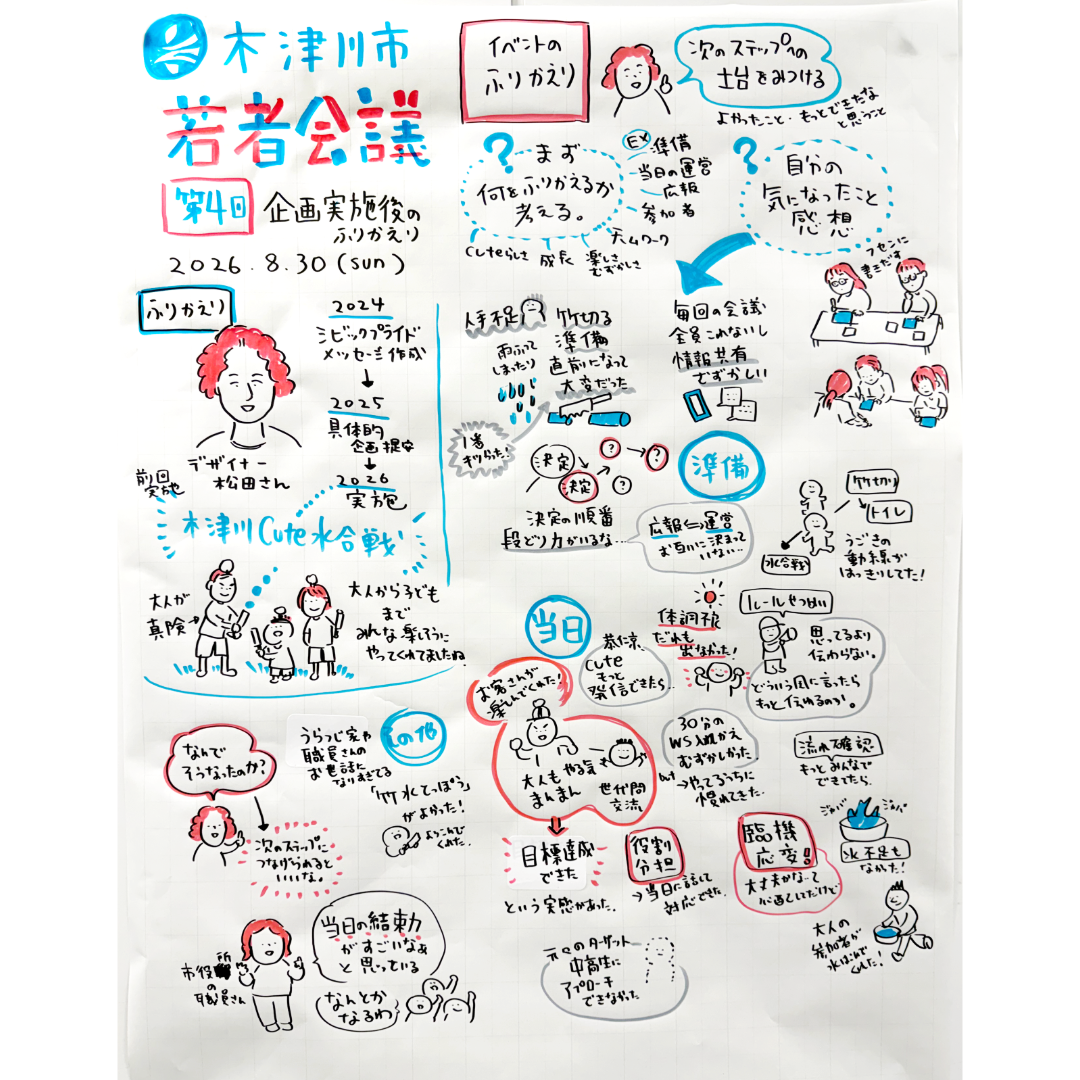 木津川市
若者会議
第4回
企画実施後の
ふりかえり
2026.8.30(sun)
ふりかえり
デザイナー
松田さん
2024
シビックプライド
メッセージ作成
2025
具体的
企画提案
2026
実施
前回
実施
木津川Cute水合戦
大人が
真険
大人から子ども
まで
みんな楽しそうに
やってくれてましたね
イベントの
ふりかえり
次のステップへの
土台をみつける
よかったこと・もっとできたな
と思うこと
まず
何をふりかえるか
考える。
EX
準備
当日の運営
広報
参加者
チームワーク
楽しさ
むずかしさ
成長
Cuteらしさ
自分の
気になったこと
感想
フセンに
書きだす
人手不足
雨ふって
しまったり
竹切る
準備
直前になって
大変だった
1番
キツかった…
毎回の会議
全員これないし
情報共有
むずかしい
準備
決定
決定
?
?
?
決定の順番
段どり力がいるな…
広報⇔運営
お互いに決まって
いない…
竹切り
トイレ
水合戦
うごきの
動線が
はっきりしてた!
当日
お客さんが
楽しんでくれた!
大人もやる気
まんまん
世代間
交流
目標達成
できた
という実感があった。
恭仁京
Cute
もっと
発信できたら…
体調不良
だれも
出なかった!
ルールせつめい
思ってるより
伝わらない。
どういう風に言ったら
もっと伝わるのか。
30分の
WS入れかえ
むずかしかった
but
→やってるうちに
慣れてきた
流れ確認
もっとみんなで
できてたら
役割
分担
→当日に話して
対応できた。
臨機
応変!
大丈夫かな…って
心配してただけど
ジャバ
ジャバ
水不足も
なかった!
大人の
参加者が
水はこんで
くれた!
元々のターゲット
中高生に
アプローチ
できなかった
その他
うらつじ家や
職員さんの
お世話に
なりすぎてる
「竹水てっぽう」
がよかった!
よろこんで
くれた。
なんで
そうなったのか?
次のステップに
つなげられると
いいな。
市役所
の
職員さん
当日の結束力
がすごいなぁ
と思っている
なんとか
なるわ